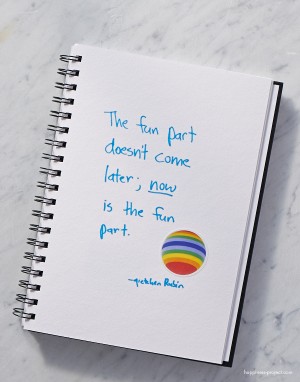 The fun part
doesn't come
later; now
is the fun
part.
—Gretchen Rubin